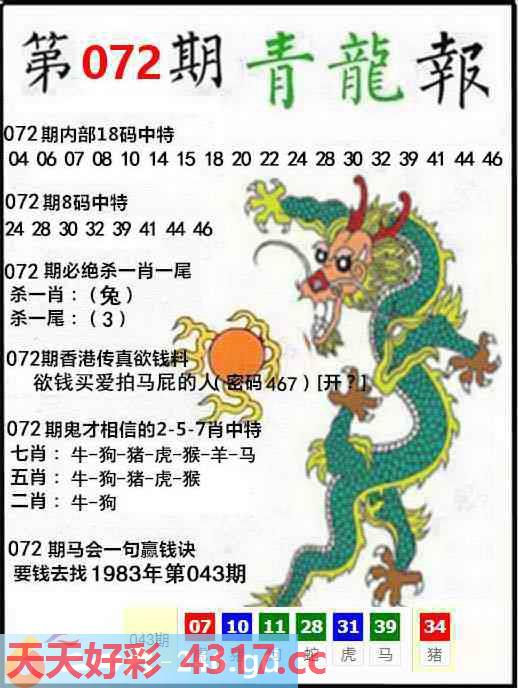 第072期青龍報
072期内部18码中特
04 06 07 08 10 14 15 18 20 22 24 28 30 32 39 41 44 46
072期8码中特
24 28 30 32 39 41 44 46
072期必绝杀一肖一尾
杀一肖：(兔)
杀一尾：(3)
072期香港传真欲钱料
欲钱买爱拍马屁的人(密码467)[开?]
072期鬼才相信的2-5-7肖中特
七肖：牛-狗-猪-虎-猴-羊-马
五肖：牛-狗-猪-虎-猴
二肖：牛-狗
072期马会一句赢钱诀
要钱去找1983年第043期
07 10 11 28 31 39 34
043期
蛇 虎 马 猪
天天好彩 4317.cc